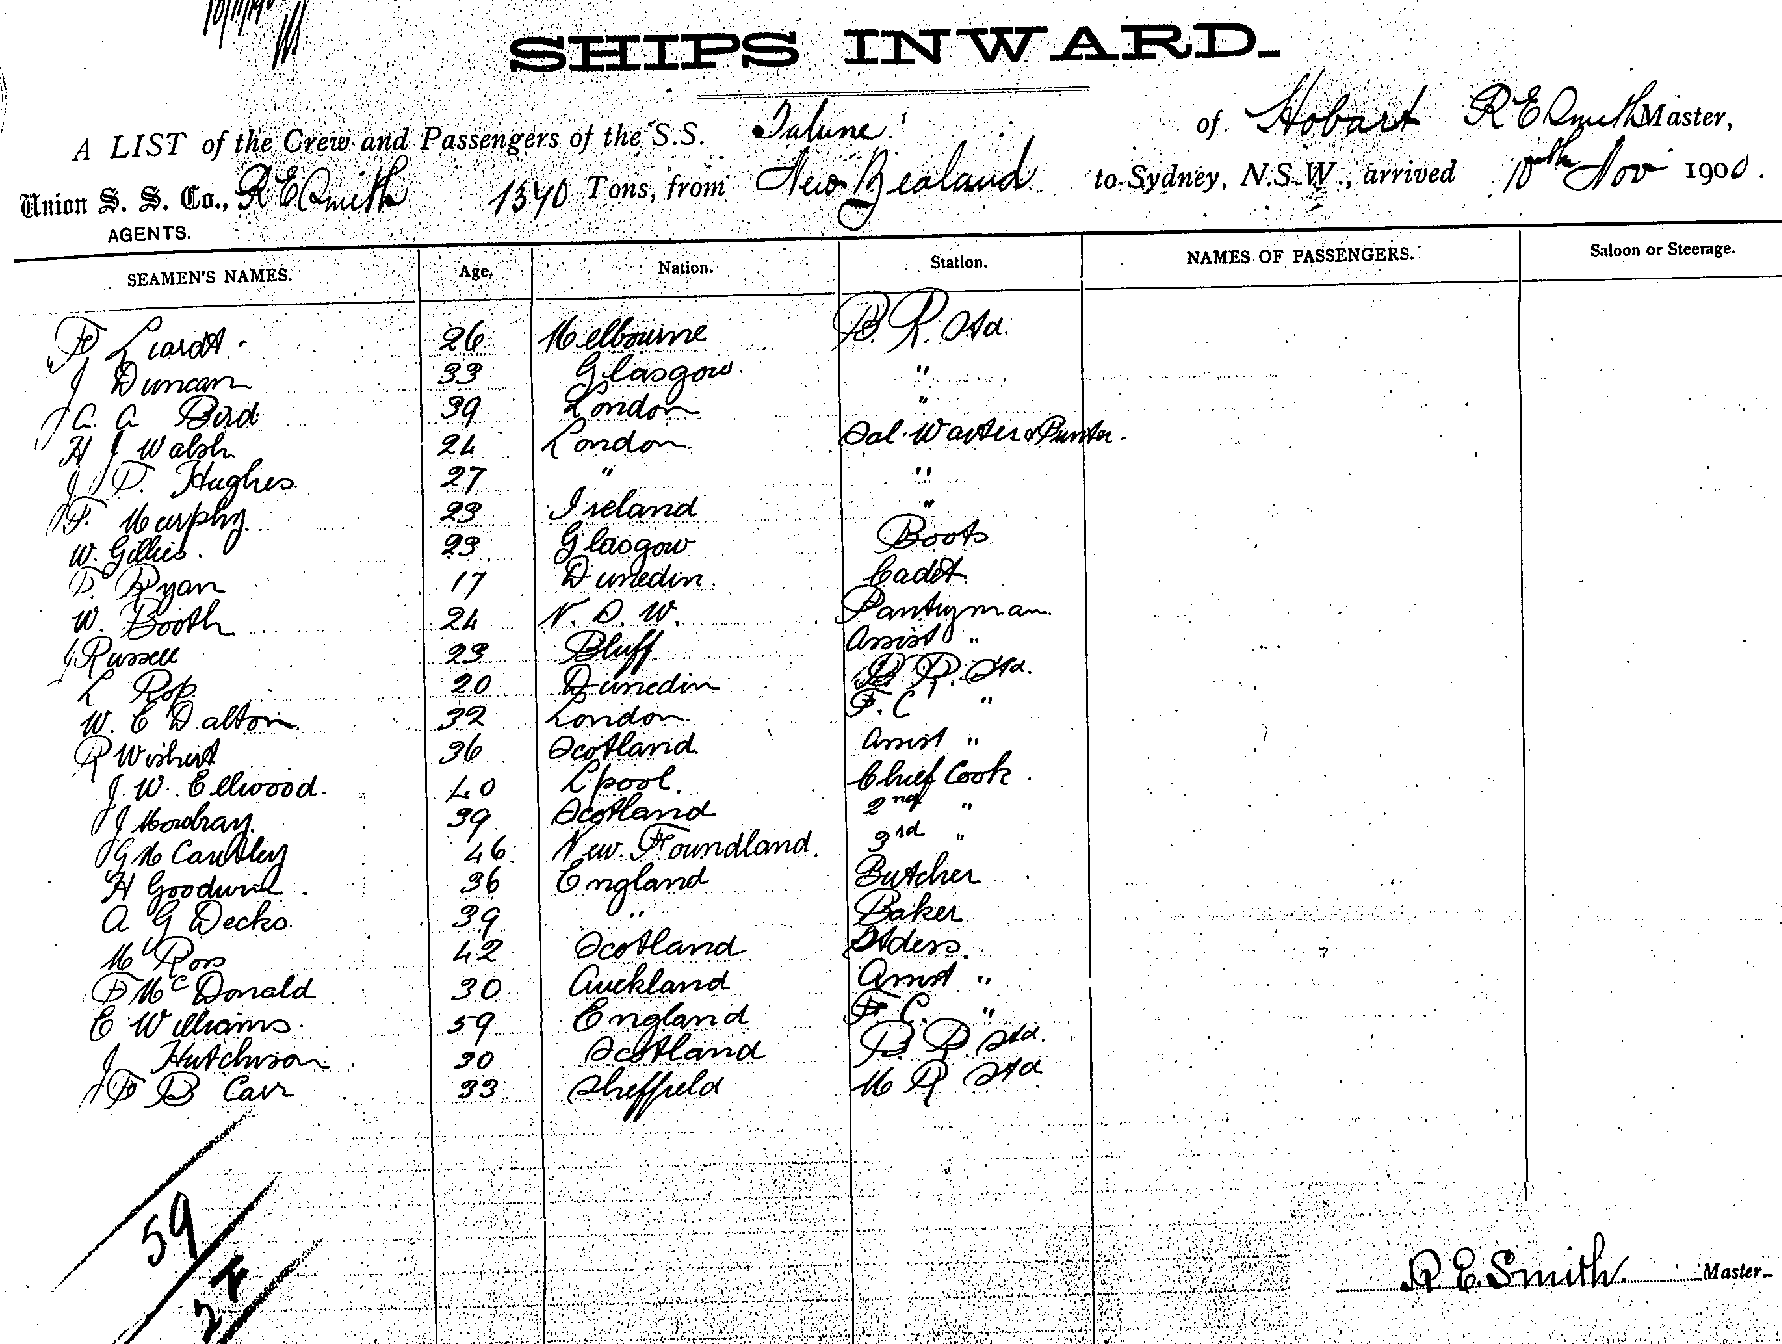 SHIPS INWARD.
A LIST of the Crew and Passengers of the S.S. Talune of Hobart R E Smith Master,
Union S. S. Co., R E Smith 1370 Tons, from New Zealand to Sydney, N.S.W., arrived 10th Nov 1900.
AGENTS.
SEAMEN'S NAMES. Age. Nation. Station. NAMES OF PASSENGERS. Saloon or Steerage.
F Liardt 26 Melbourne B. R. Std.
J Duncan 33 Glasgow "
J C. A Bird 39 London "
H J Walsh 24 London Sal. Waiter &
J D. Hughes 27 " "
J F. Murphy 23 Ireland "
W. Gillies. 23 Glasgow Boots
D. Ryan 17 Dunedin. Cadet.
W. Booth 24 N. S. W. Pantryman
J Russell 23 Bluff Assist "
L Rop 20 Dunedin B. R. Std.
W. E Dalton 32 London F. C "
R Wishart 36 Scotland Assist "
J. W. Ellwood. 40 Lpool. Chief Cook.
J Mowbray. 39 Scotland 2nd "
G McCaulley 46 New Foundland. 3rd "
H Goodwin. 36 England Butcher
A G Decks. 39 " Baker
M Ross 42 Scotland Stdess.
F McDonald 30 Auckland Assist "
E Williams. 59 England F. C. "
J Hutchison 30 Scotland B. R. Std.
J F B Carr 33 Sheffield M R Std
59
24
R E Smith. Master